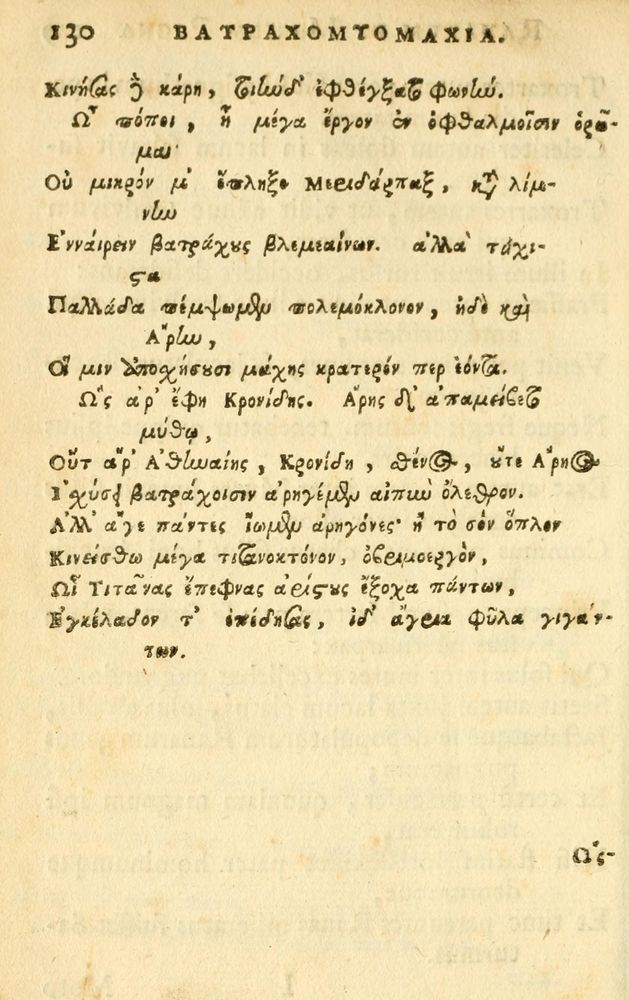 130 ΒΑΤΡΑΧΟΜΥΟΜΑΧΙΑ.
Κινήσας δὲ κάρη, τοιήνδ' ἐφθέγξατο φωνήν.
Ω῍ πόποι, ἦ μέγα ἔργον ἐν ὀφθαλμοῖσιν ὁρῶ-
μαι·
Οὐ μικρόν μ' ἔπληξε Μεριδάρπαξ, κατὰ λίμ-
νην
Ε᾽νναίρειν βατράχους βλεμεαίνων. ἀλλὰ τάχι-
στα
Παλλάδα πέμψωμεν πολεμόκλονον, ἠδὲ καὶ
Α῎ρην,
Οἵ μιν ἀποσχήσουσι μάχης κρατερόν περ ἐόντα.
Ω῝ς ἀρ' ἔφη Κρονίδης. Α῎ρης δ' ἀπαμείβετο
μύθῳ,
Οὔτ ἂρ' Α᾽θηναίης, Κρονίδη, σθένος, οὔτε Α῎ρηος
Ι᾽χύσει βατράχοισιν ἀρηγέμεν αἰπιὼ ὄλεθρον.
Α᾽λλ' ἄγε πάντες ἴωμεν ἀρηγόνες· ἢ τὸ σὸν ὅπλον
Κινείσθω μέγα τιτανοκτόνον, ὀβριμοεργὸν,
Ω῟ͅ Τιτᾶνας ἔπεφνας ἀρίστους ἔξοχα πάντων,
Ε᾽γκέλαδον τ' ἐπέδησας, ἰδ' ἄγρια φῦλα γιγάν-
των.
Ω῝ς-